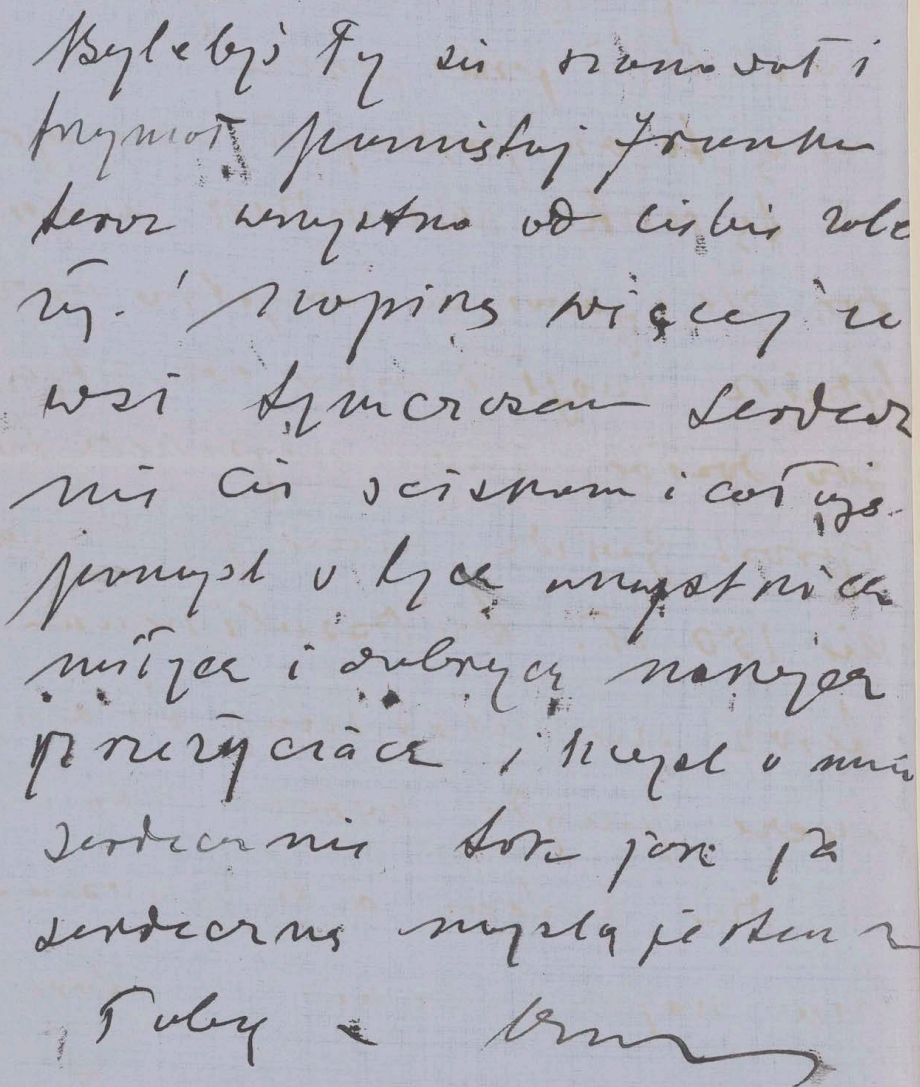 Bylebyś Ty się szanował i
trzymał pamiętaj Franku
teraz wszystko od ciebie zale
ży. Napiszę więcej ze
wsi tymczasem serdecz
nie Cię ściskam i całuję
pomyśl o tych wszystkich
miłych i dobrych naszych
przeżyciach i myśl o mnie
serdecznie tak jak ja
serdeczną myślą jestem z
Tobą